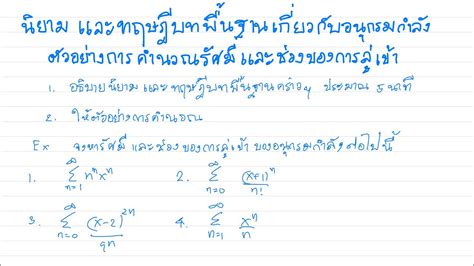 นิยาม และทฤษฎีบทพื้นฐานเกี่ยวกับอนุกรมกำลัง
ตัวอย่างการคำนวณรัศมีและช่วงของการลู่เข้า
1. อธิบายนิยามและทฤษฎีบทพื้นฐานคร่าวๆ ประมาณ 5 นาที
2. ให้ตัวอย่างการคำนวณ
Ex จงหารัศมี และช่วงของการลู่เข้า ของอนุกรมกำลังต่อไปนี้
1. ∞∑n=1 nⁿxⁿ 2. ∞∑n=0 (x+1)ⁿ/n!
3. ∞∑n=0 (x-2)²ⁿ/9ⁿ 4. ∞∑n=1 xⁿ/n